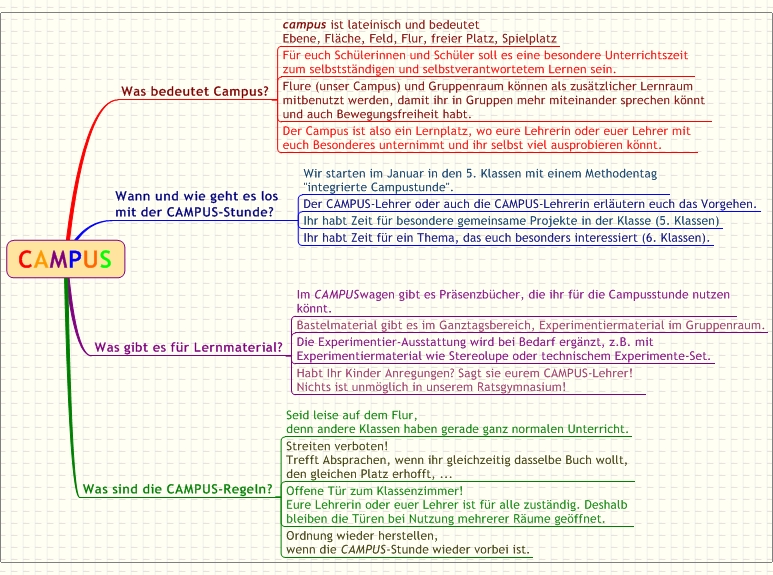 campus ist lateinisch und bedeutet
Ebene, Fläche, Feld, Flur, freier Platz, Spielplatz
Für euch Schülerinnen und Schüler soll es eine besondere Unterrichtszeit
zum selbstständigen und selbstverantwortetem Lernen sein.
Was bedeutet Campus?
Flure (unser Campus) und Gruppenraum können als zusätzlicher Lernraum
mitbenutzt werden, damit ihr in Gruppen mehr miteinander sprechen könnt
und auch Bewegungsfreiheit habt.
Der Campus ist also ein Lernplatz, wo eure Lehrerin oder euer Lehrer mit
euch Besonderes unternimmt und ihr selbst viel ausprobieren könnt.
Wann und wie geht es los
mit der CAMPUS-Stunde?
Wir starten im Januar in den 5. Klassen mit einem Methodentag
"integrierte Campustunde".
Der CAMPUS-Lehrer oder auch die CAMPUS-Lehrerin erläutern euch das Vorgehen.
Ihr habt Zeit für besondere gemeinsame Projekte in der Klasse (5. Klassen)
Ihr habt Zeit für ein Thema, das euch besonders interessiert (6. Klassen).
CAMPUS
Was gibt es für Lernmaterial?
Im CAMPUSwagen gibt es Präsenzbücher, die ihr für die Campusstunde nutzen
könnt.
Bastelmaterial gibt es im Ganztagsbereich, Experimentiermaterial im Gruppenraum.
Die Experimentier-Ausstattung wird bei Bedarf ergänzt, z.B. mit
Experimentiermaterial wie Stereolupe oder technischem Experimente-Set.
Habt Ihr Kinder Anregungen? Sagt sie eurem CAMPUS-Lehrer!
Nichts ist unmöglich in unserem Ratsgymnasium!
Was sind die CAMPUS-Regeln?
Seid leise auf dem Flur,
denn andere Klassen haben gerade ganz normalen Unterricht.
Streiten verboten!
Trefft Absprachen, wenn ihr gleichzeitig dasselbe Buch wollt,
den gleichen Platz erhofft, ...
Offene Tür zum Klassenzimmer!
Eure Lehrerin oder euer Lehrer ist für alle zuständig. Deshalb
bleiben die Türen bei Nutzung mehrerer Räume geöffnet.
Ordnung wieder herstellen,
wenn die CAMPUS-Stunde wieder vorbei ist.